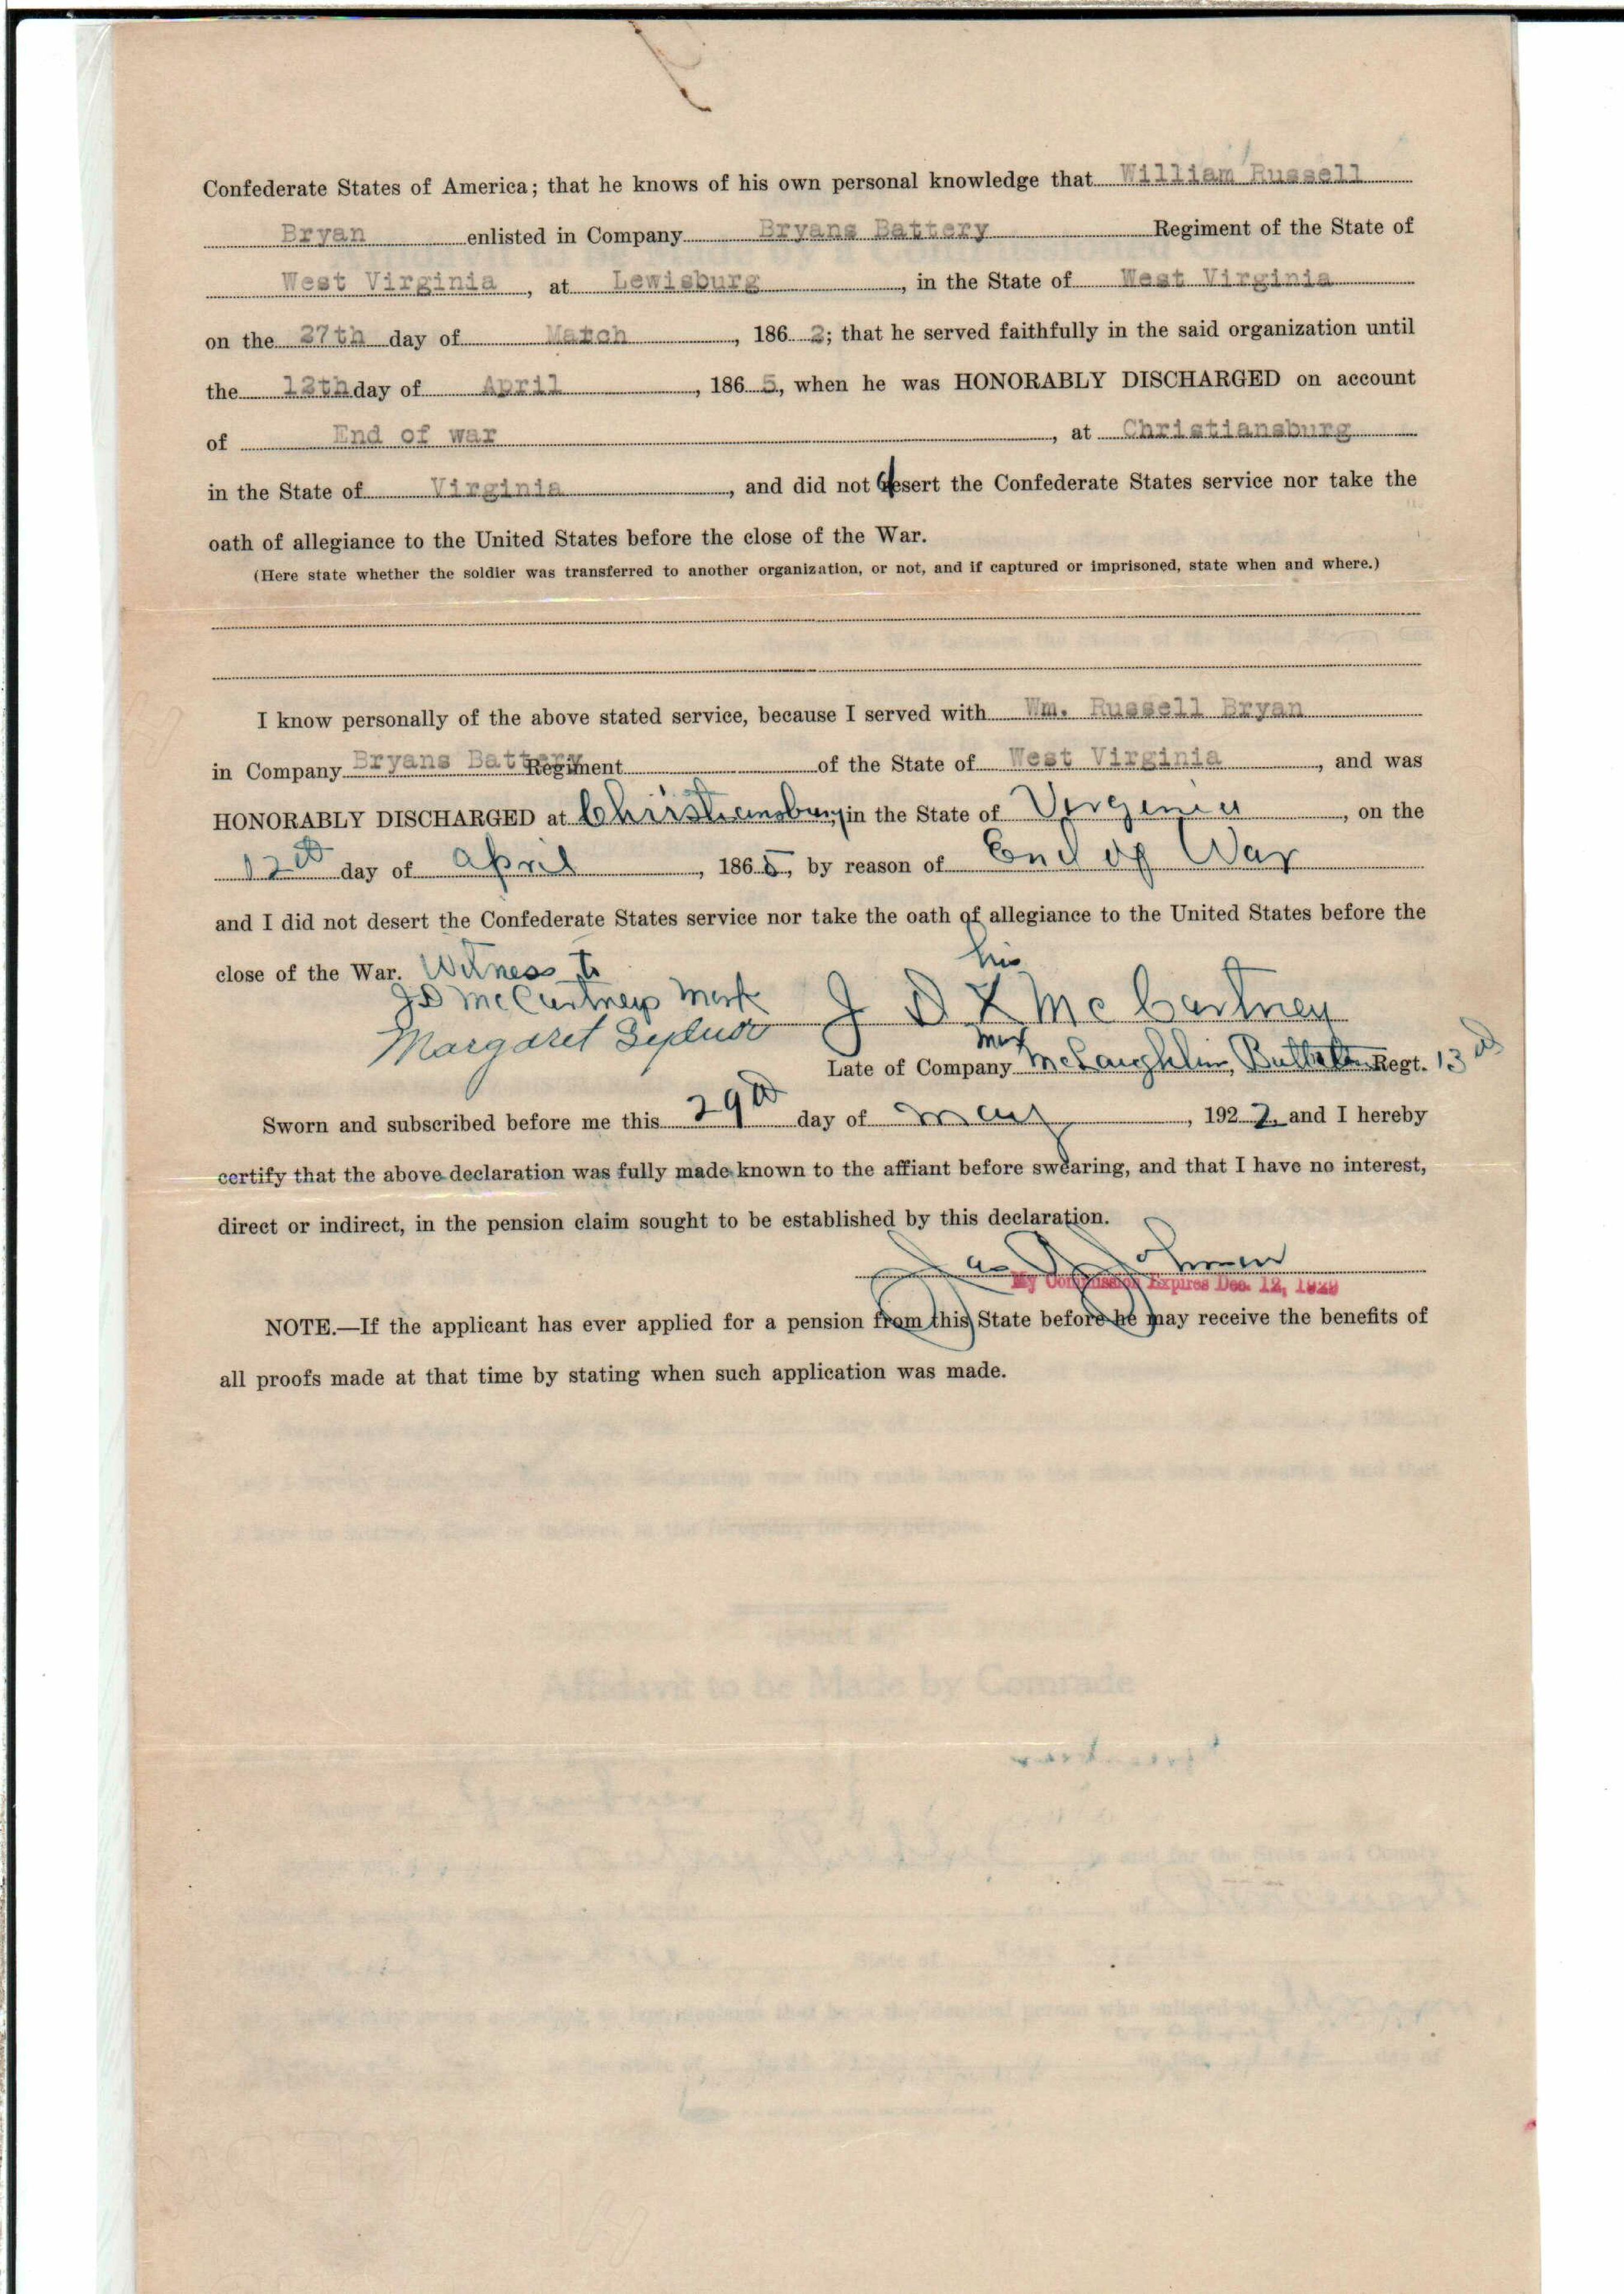 Confederate States of America; that he knows of his own personal knowledge that William Russell
Bryan enlisted in Company Bryans Battery Regiment of the State of
West Virginia, at Lewisburg, in the State of West Virginia
on the 27th day of March, 1862; that he served faithfully in the said organization until
the 12th day of April, 1865, when he was HONORABLY DISCHARGED on account
of End of war, at Christiansburg
in the State of Virginia, and did not desert the Confederate States service nor take the
oath of allegiance to the United States before the close of the War.
(Here state whether the soldier was transferred to another organization, or not, and if captured or imprisoned, state when and where.)
I know personally of the above stated service, because I served with Wm. Russell Bryan
in Company Bryans Battery Regiment of the State of West Virginia, and was
HONORABLY DISCHARGED at Christiansburg in the State of Virginia, on the
12th day of April, 1865, by reason of End of War
and I did not desert the Confederate States service nor take the oath of allegiance to the United States before the
close of the War. Witness to his
J D McCartneys Mark J D X McCartney
Margaret mark
Late of Company McLaughlin, Regt. 13
Sworn and subscribed before me this 29th day of May, 1922, and I hereby
certify that the above declaration was fully made known to the affiant before swearing, and that I have no interest,
direct or indirect, in the pension claim sought to be established by this declaration.
Johnson
My Commission Expires Dec. 12, 1929
NOTE.—If the applicant has ever applied for a pension from this State before he may receive the benefits of
all proofs made at that time by stating when such application was made.
Affidavit to be Made by Comrade